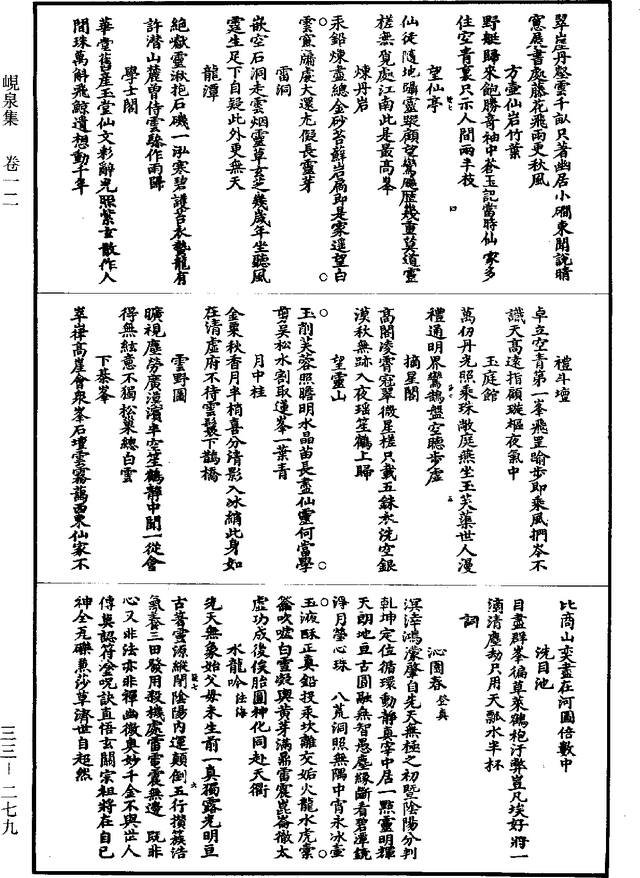 翠崖丹壑雲千疊只著幽居小礀東聞說晴
窻展書處藤花飛雨更秋風
方壷仙岩竹葉
野艇歸來飽勝竒袖中蒼玉記當時仙家多
住空青裏只示人間兩三枝
望仙亭
仙徒隨地躡靈蹤顧望鸞飈歷幾重莫道靈
槎無覓處江南此是最高峯
煉丹岩
汞鉛煉盡總金砂苔蘚岩扃即是家遥望白
雲窻牖處大還九假長靈芽
雷洞
嵌空石洞走雲烟靈草玄芝幾歲年坐聽風
霆生足下自疑此外更無天
龍潭
絶嶽靈湫抱石磯一泓寒碧護苔衣蟄龍有
許潜山麓曽侍雲驂作雨歸
學士閣
華堂舊產玉堂仙文彩辭光照紫玄散作人
間珠萬斛飛鯨遺想動千年
禮斗壇
卓立空青第一峯飛罡踰步即乘風捫岑不
識天高遠指顧璇樞夜氣中
玉庭館
萬仞丹光照乘珠敞庭燕坐玉芙蕖世人漫
禮通明界鸞鶴盤空聽步虛
摘星閣
高閣凌霄冠翠微星槎只載五銖衣洗空銀
漢秋無跡入夜瑶笙鶴上歸
望靈山
玉削芙蓉照膽明水晶苗長盡仙靈何當學
剪吴松水割取蓮峯一葉青
月中桂
金粟秋香月半梢喜分清影入冰綃此身如
在清虛府不待雲鬟下鵲橋
雲野圖
曠視塵勞廣漠濱半空笙鶴靜中聞一從會
得無絃意不獨松巢總白雲
下棊峯
崒嵂高崖會衆峯石壇雲霧藹西東仙家不
比商山奕盡在河圖倍數中
洗目池
目盡群峯徧草萊鶉袍汙弊豈凡埃好將一
滴清塵劫只用天瓢水半杯
詞
沁園春 登真
溟涬鴻濛肇自先天無極之初曁陰陽分判
乾坤定位循環動靜真宰中居一點靈明輝
天朗地亘古圓融無智愚塵緣斷看碧潭銃
淨月瑩心珠 八荒洞照無隅中宵永冰壷
玉液酥正真鉛投汞坎離交姤火龍水虎橐
籥吹噓白雪凝輿黄芽滿鼎雷震崑崙徹太
虛功成後俟胎圓神化同赴天衢
水龍吟 往海
先天無象始父母未生前一真獨露光明亘
古蓄靈源縱閉陰陽内運顛倒五行攢簇浩
氣養三田發用殺機處雷電震無邊 既非
心又非法亦非禪幽微奥妙千金不與世人
傳奥認符塗呪訣直悟玄關宗祖將在自已
神全兀礫蒸莎草濟世自超然
峴泉集 卷一二
三三—二七九